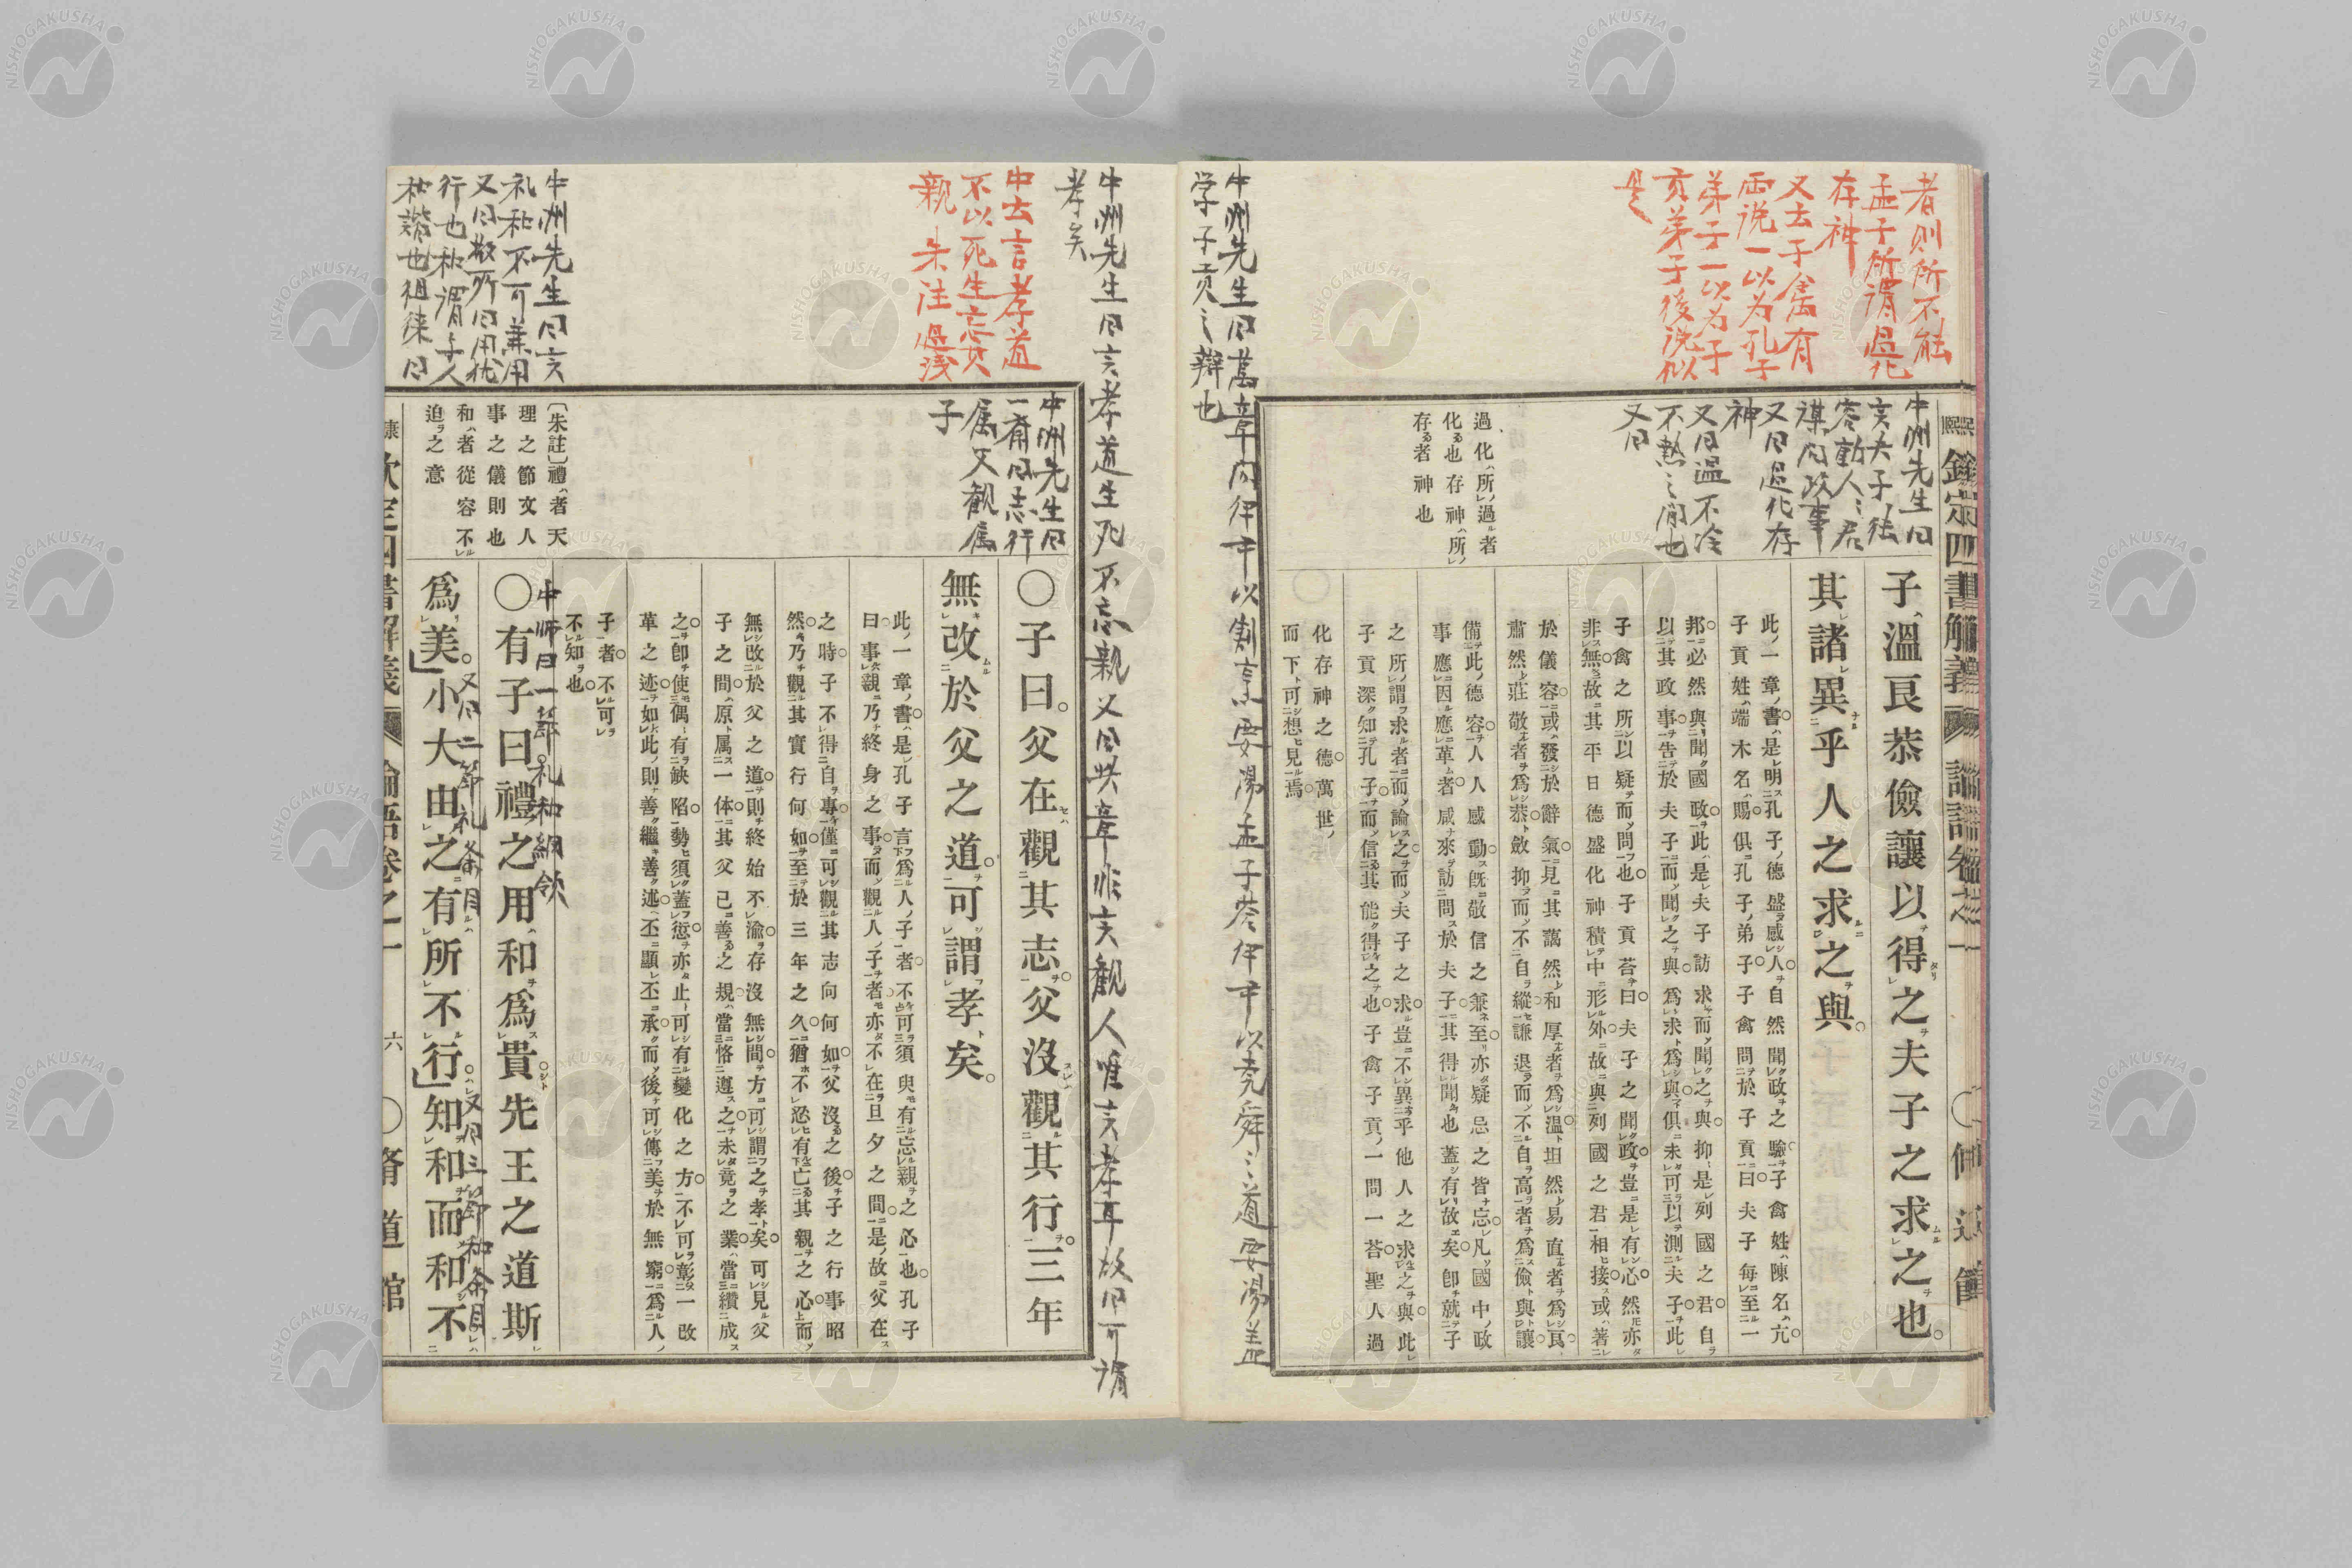 者則所不能
孟子所謂過化
存神
又云子禽有
両説一以为孔子
弟子一以为子
貢弟子後説似
是
中洲先生曰
言夫子
容動人人君
謀問政事
又曰過化存
神
又曰温不冷
不熱之间也
又曰
過化所過者
化也存神所
存者神也
欽定四書解義 論語卷之一
子溫良恭儉讓以得之夫子之求之也
其諸異乎人之求之與
此一章書是明孔子德盛感人自然聞政之驗子禽姓陳名亢
子貢姓端木名賜俱孔子弟子子禽問於子貢曰夫子每至一
邦必然與聞國政此是夫子訪求而聞之與抑是列國之君自
以其政事告於夫子而聞之與爲求爲與俱未可以測夫子此
子禽之所以疑而問也子貢荅曰夫子之聞政豈是有心然亦
非無故其平日德盛化神積中形外故與列國之君一相接或著
於儀容或發於辭氣見其藹然和厚者爲溫坦然易直者爲良
肅然莊敬者爲恭斂抑而不自縱謙退而不自高者爲儉與讓
備此德容人人感動旣敬信之兼至亦疑忌之皆忘凡國中政
事應因應革者咸來訪問於夫子其得聞也蓋有故矣卽就子
之所謂求者而論之而夫子之求豈不異乎他人之求之與此
子貢深知孔子而信其能得之也子禽子貢一問一荅聖人過
化存神之德萬世
而下可想見焉
中洲先生曰萬章问伊尹以割烹要湯孟子荅伊尹以堯舜之道要湯蓋
学子貢之辯也
中洲先生曰言孝道生死不忘親又曰此章非言観人唯言孝耳故曰可謂
孝矣
中云言孝道
不以死生忘其
親 朱注過浅
中洲先生曰
一斎曰志行
属父観属
子
○子曰父在觀其志父沒觀其行三年
無改於父之道可謂孝矣
此一章書是孔子言爲人子者不可須臾有忘親之心也孔子
曰事親乃終身之事而觀人子者亦不在旦夕之間是故父在
之時子不得自專僅可觀其志向何如父沒之後子之行事昭
然乃觀其實行何如至於三年之久猶不恣有亡其親之心而
無改於父之道則終始不渝存沒無間方可謂之孝矣可見父
子之間原属一体其父已善之規當恪遵之未竟之業當纘成
之卽使偶有缺陷勢須蓋愆亦止可有變化之方不可彰一改
革之迹如此則善繼善述丕顯丕承而後可傳美於無窮爲人
子者不可
不知也
中洲先生曰言
礼和不可兼用
又曰
行也和謂与人
和諧也徂徠曰
〔朱註〕禮者天
理之節文人
事之儀則也
和者從容不
迫之意
中師曰一節礼和綱領
○有子曰禮之用和爲貴先王之道斯
又曰二節礼条目
又曰三節和条目
爲美小大由之有所不行知和而和不
欽定四書解義 論語卷之一 六 ○脩道館